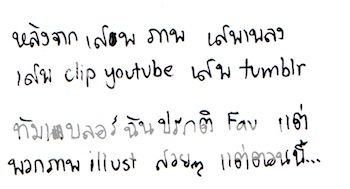 หลังจาก เสพ ภาพ เสพเพลง
เสพ clip youtube เสพ tumblr
ทัมเบลอร์ ฉันปรกติ Fav แต่
พวกภาพ illust สวยๆ แต่ตอนนี้...